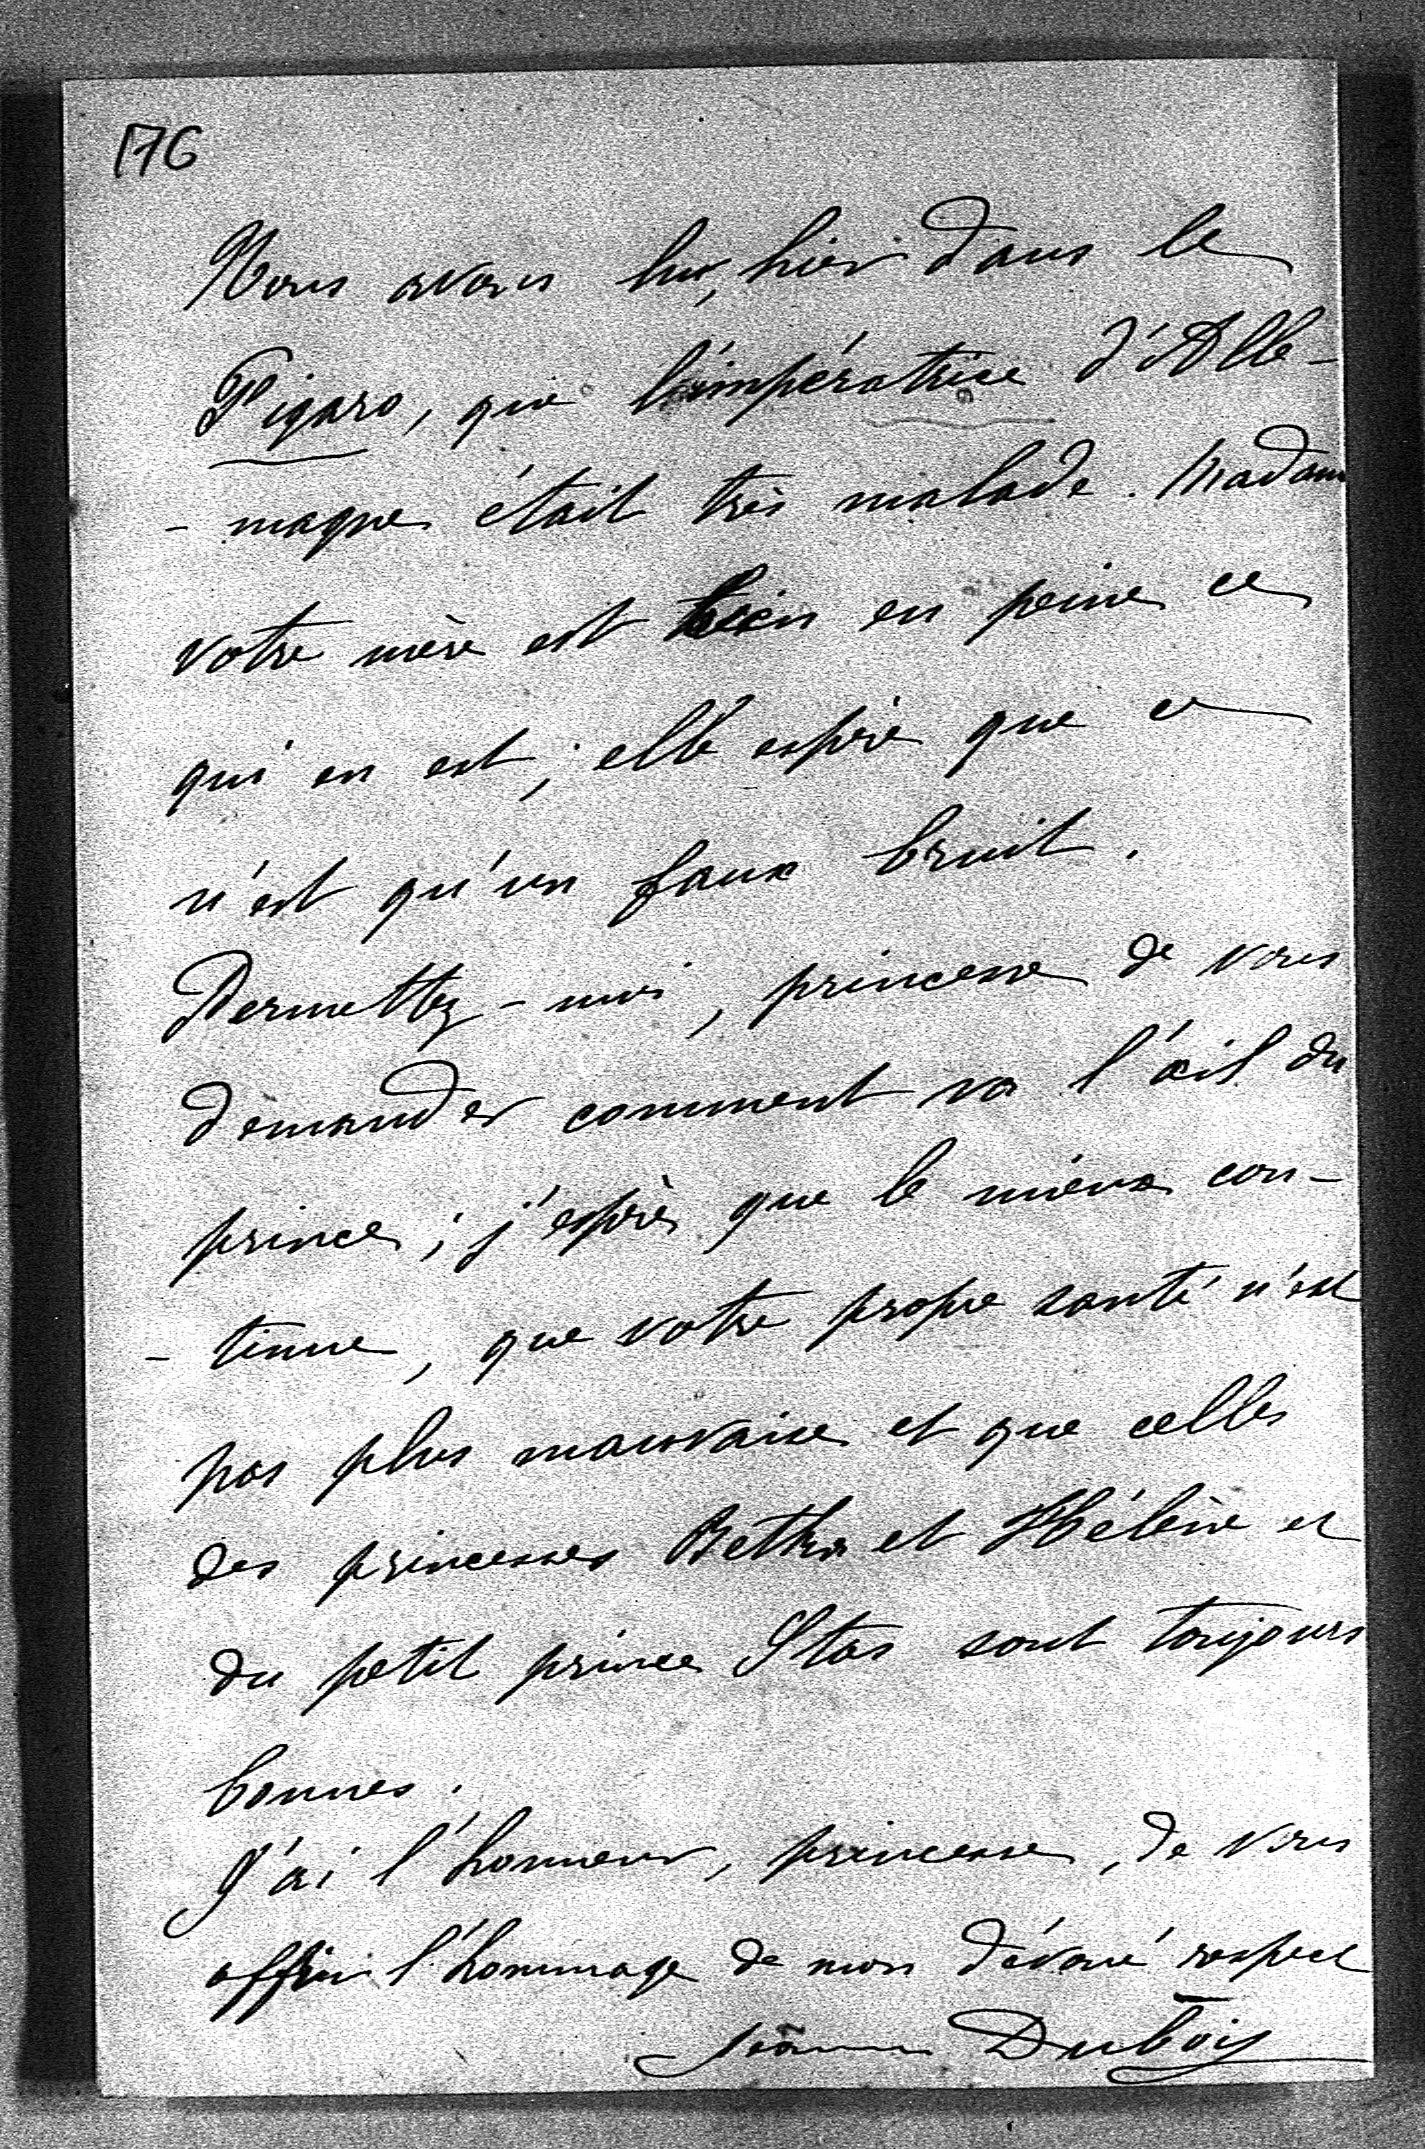 176
Nous avons lu, hier dans le
Figaro, que l'impératrice d'Alle-
- magne était très malade. Madame
votre mère est bien en peine ce
qui en est; elle espère que ce
n'est qu'un faux bruit.
Permettez-moi, princesse de vous
demander comment va l'œil du
prince; j'espère que le mieux con-
- tinue, que votre propre santé n'est
pas plus mauvaise et que celles
des princesses Betka et Hélène et
du petit prince Stas sont toujours
bonnes.
J'ai l'honneur, princesse, de vous
offrir l'hommage de mon dévoué respect
Jeanne Dubois